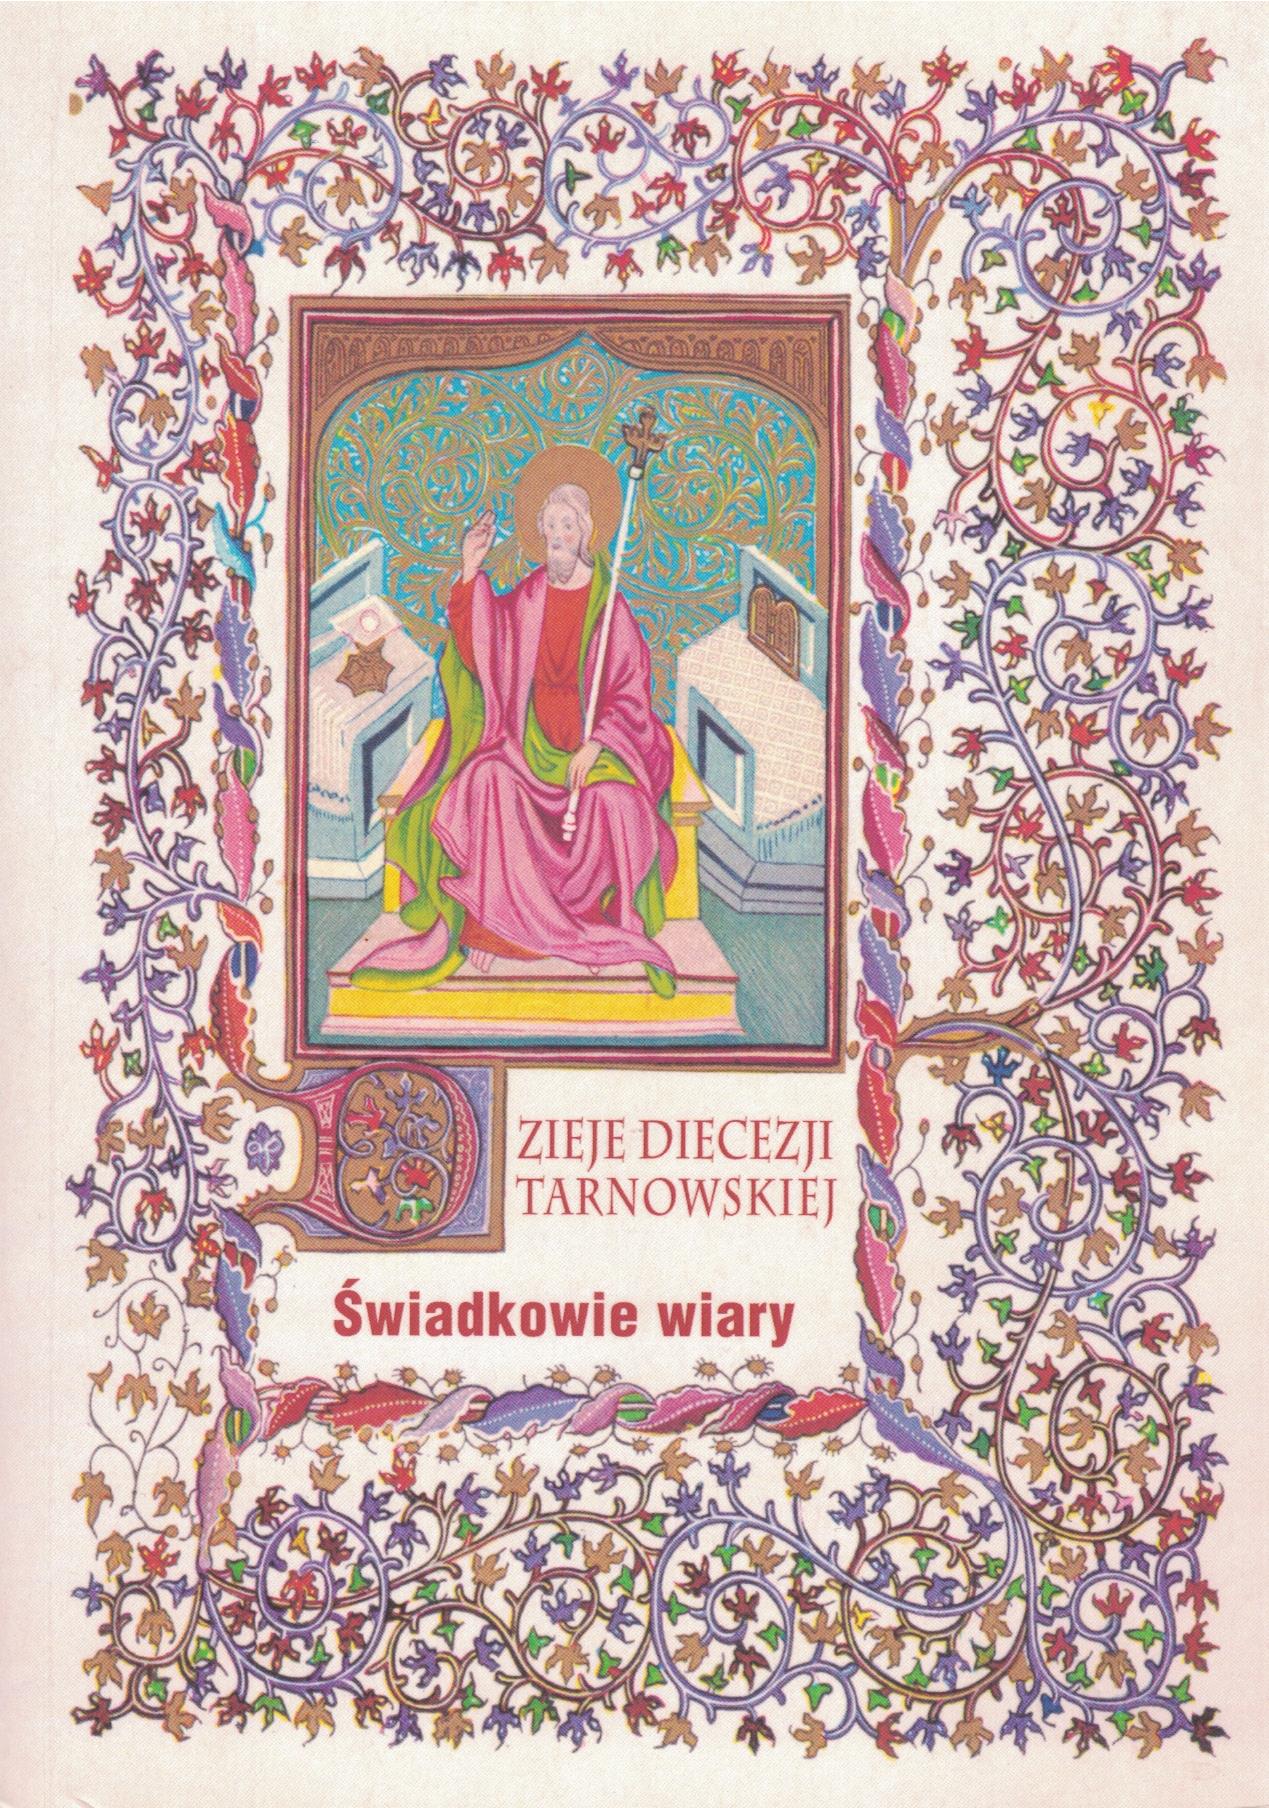 DZIEJE DIECEZJI
TARNOWSKIEJ
Świadkowie wiary